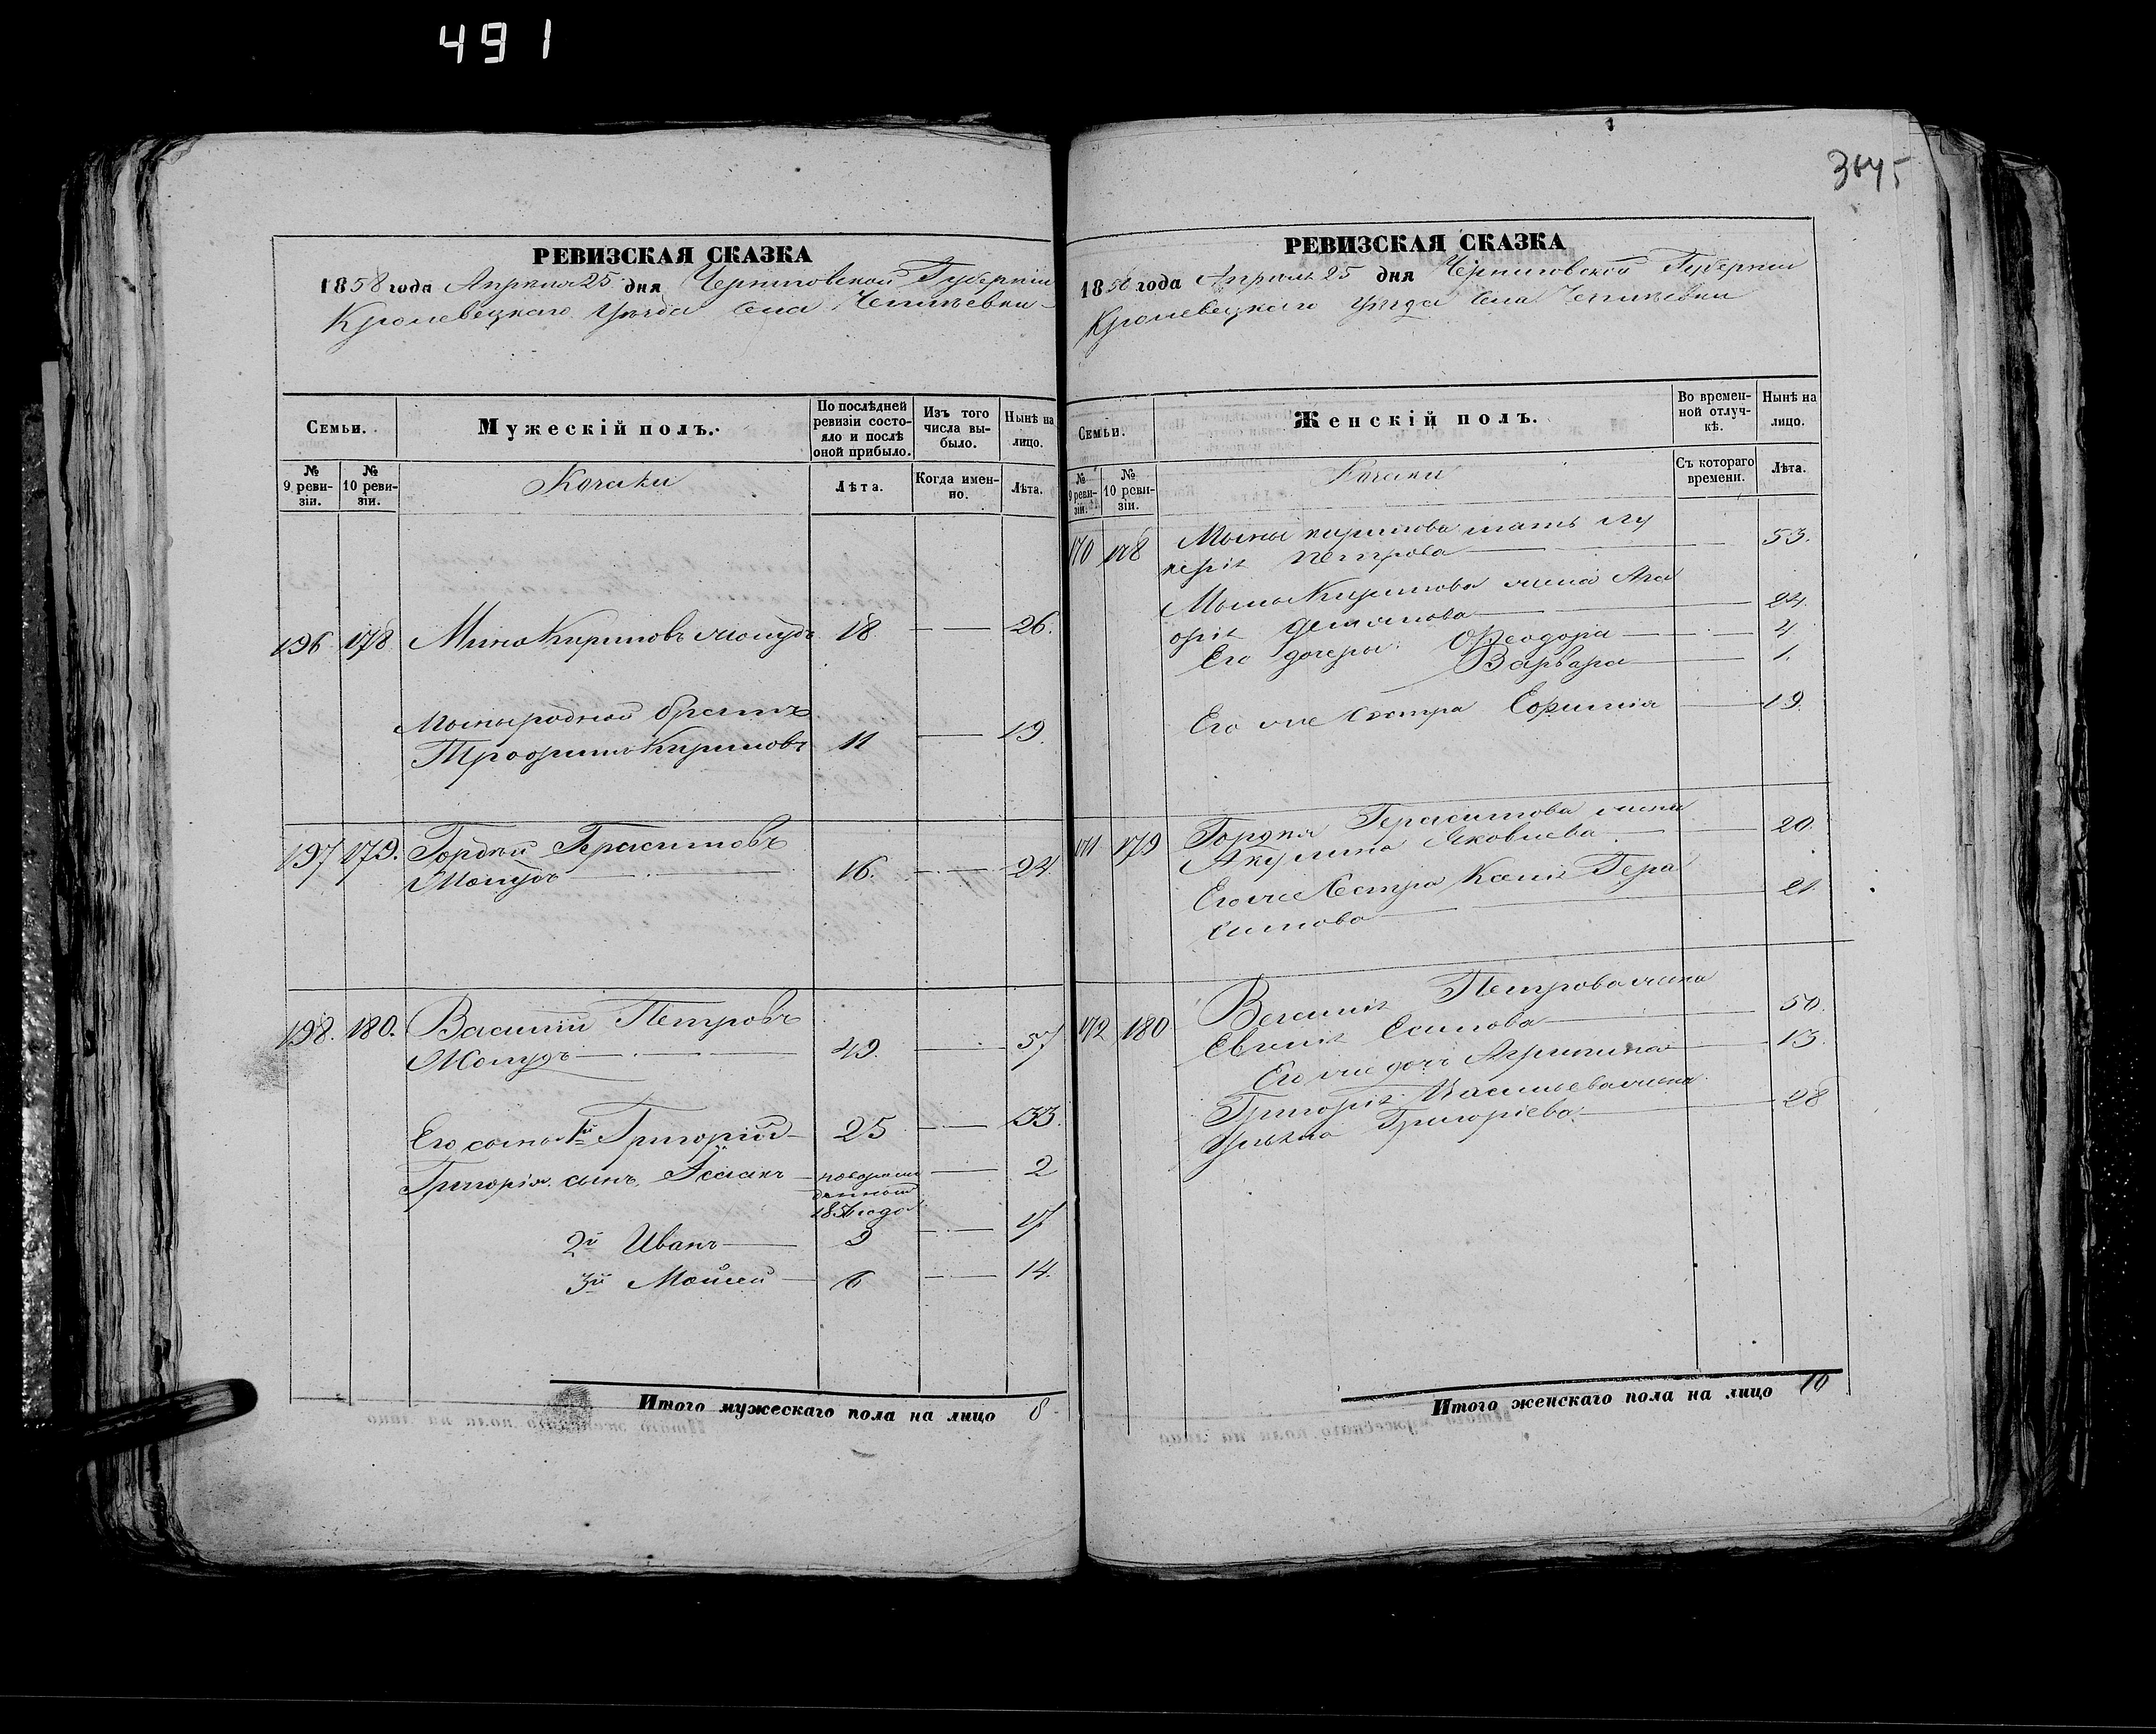 491
3645
РЕВИЗСКАЯ СКАЗКА
1858 года Апреля 25 дня Черниговской Губерніи
Кролевецкаго Уѣзда Села
Семьи.
Мужескій полъ.
По послѣдней ревизіи состояло и послѣ оной прибыло.
Изъ того числа выбыло.
Нынѣ на лицо.
№ 9 ревизіи.
№ 10 ревизіи.
Козаки
Лѣта.
Когда именно.
Лѣта.
196 178 Мина Кириловъ 18 26.
Мыны родной братъ
Трофимъ Кириловъ 11 19.
197 179. Гордѣй Герасимовъ
16. 24.
198. 180. Василій Петровъ
49. 57
Его сыны 1й Григорій 25 33.
Григорія сынъ Исаакъ 2
1856 года
2й Иванъ 9 17
3й Мойсей 6 14.
Итого мужескаго пола на лицо 8
РЕВИЗСКАЯ СКАЗКА
1858 года Апреля 25 дня Черниговской Губерніи
Кролевецкаго Уѣзда Села
Семьи.
Женскій полъ.
Во временной отлучкѣ.
Нынѣ на лицо.
№ 9 ревизіи.
№ 10 ревизіи.
Козаки
Съ котораго времени.
Лѣта.
170 178 Мыны Кирилова мать Лу
керія Петрова 53.
Мыны Кирилова жена Ага
фія Демянова 24.
Его дочери: Ѳеодора 4
Варвара 1.
Его же сестра Ефимія 19.
171 179 Гордѣя Герасимова жена
Акулина Яковлева 20.
Его же сестра Ксенія Гера
симова 21
172 180 Василія Петрова жена
Евгенія Осипова 50.
Его же дочь Агрипина 13.
Григорія Васильева жена
Ульяна Григоріева 28
Итого женскаго пола на лицо 10